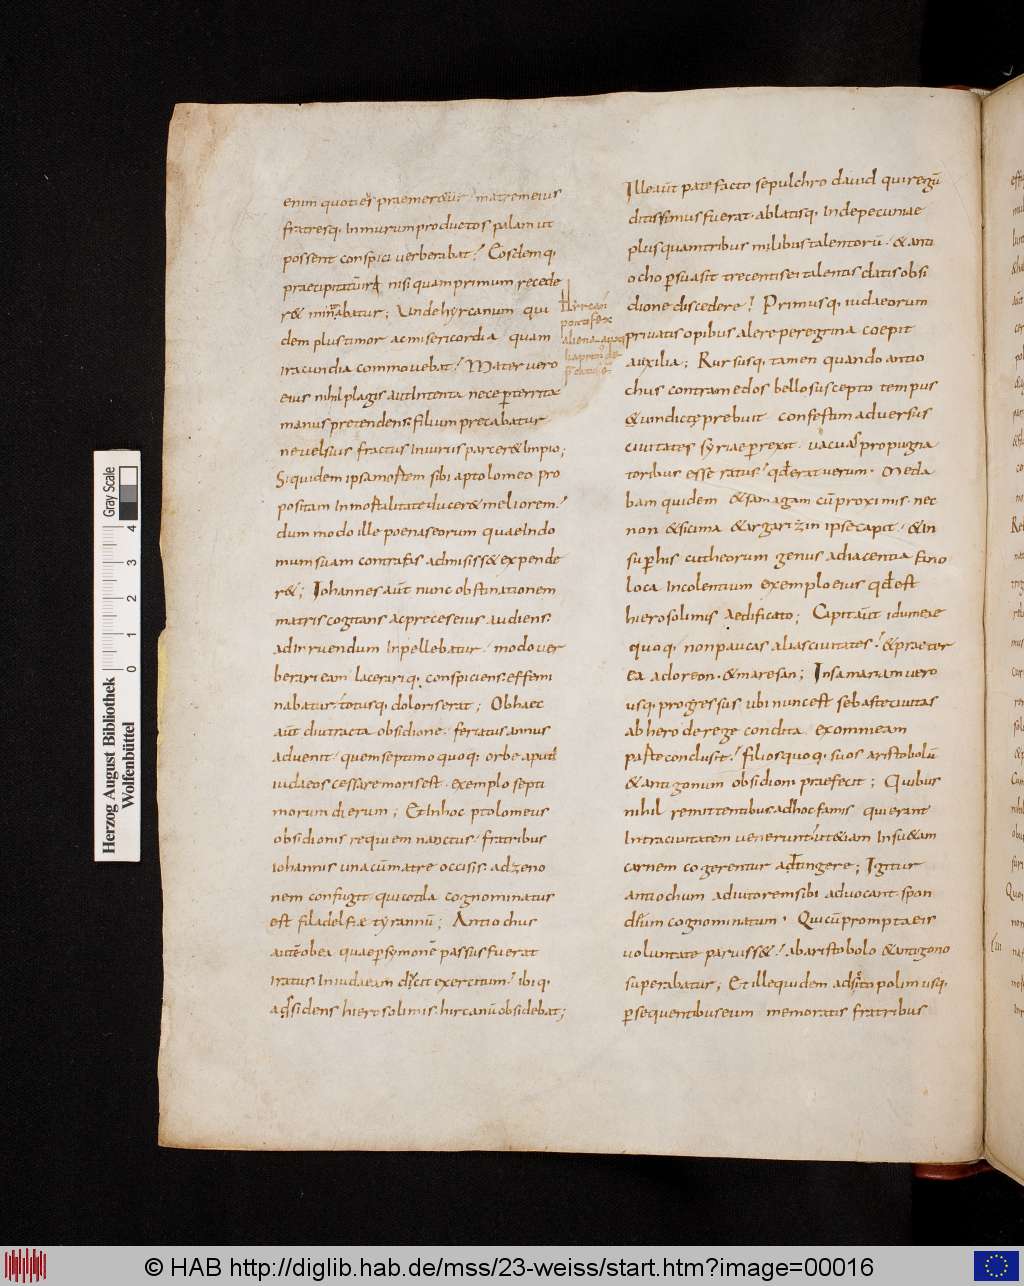 enim quotiẽs praemeretur matrem eius
fratresq; in murum productos palam ut
possent conspici verberabat; Eosdemq;
nisi quam primum recede
ret minabatur; Unde hyrcanum qui
dem plus timor ac misericordia quam
iracundia commovebat; Mater vero
eius nihil plagis aut intenta nece perterrita
manus pretendens filium precabatur
ne vel suis fractus iniuriis parceret impio;
Siquidem ipsa mortem sibi a ptolomeo pro
positam inmortalitate duceret meliorem;
dum modo ille poenas eorum quae in do
mum suam contra fas admisisset expende
ret; Iohannes aūt nunc obstinationem
matris cogitans ac preces eius audiens
ad irruendum inpellebatur modo ver
berari eam lacerariq; conspiciens effemi
nabatur totusq; doloris erat; Ob haec
aūt diu tracta obsidione feriatus annus
advenit quem septimo quoq; orbe aput
iudaeos cessare moris est exemplo septi
morum dierum; Et in hoc ptolomeus
obsidionis requiem nanctus fratribus
iohannis una cū matre occisis ad zeno
nem confugit qui cotila cognominatur
est filadelfiae tyrannū; Antiochus
autē ob ea quae per symonē passus fuerat
iratus in iudaeam ducit exercitum ibiq;
adsidens hierosolimis hircanū obsidebat;
Hyrcan
pontifex
aliena
Ille aūt patefacto sepulchro david qui regū
ditissimus fuerat ablatisq; inde pecuniae
plus quam tribus milibus talentorū & anti
ocho persuasit trecentis ei talentis datis obsi
dione discedere; Primusq; iudaeorum
privatis opibus alere peregrina coepit
auxilia; Rursusq; tamen quando antio
chus contra medos bello suscepto tempus
& vindictę prebuit confestim adversus
civitates syriae perrexit vacuas propugna
toribus esse ratus qđ erat verum. Meda
bam quidem & samagam cū proximis nec
non & sicima & argarizin ipse capit & in
super his cutheorum genus adiacentia fano
loca incolentium exemplo eius qđ est
hierosolimis aedificato; Capit aūt idumeae
quoq; non paucas alias civitates & praeter
ea adoreon & maresan; In samariam vero
usq; progressus ubi nunc est sebaste civitas
ab herode rege condita ex omni eam
parte conclusit; filios quoq; suos aristobolū
& antigonum obsidioni praefecit; Quibus
nihil remittentibus ad hoc famis qui erant
intra civitatem venerunt ut etiam insuetam
carnem cogerentur adtingere; Igitur
antiochum adiutorem sibi advocant spon
dium cognominatum. Qui cū prompta eis
voluntate paruisset ab aristobolo & antigono
superabatur; Et ille quidem ad scitopolim usq;
persequentibus eum memoratis fratribus
Herzog August Bibliothek
Wolfenbüttel
0 1 2 3 4
Gray Scale
© HAB http://diglib.hab.de/mss/23-weiss/start.htm?image=00016